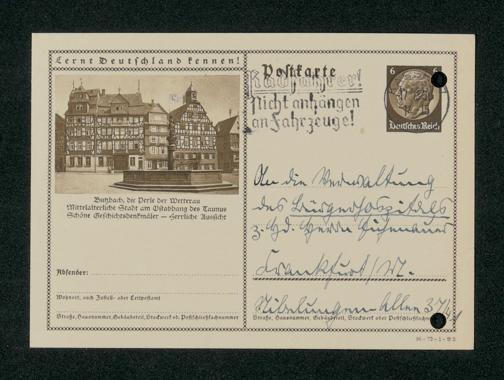 Lernt Deutschland kennen!
Postkarte
6 6
Radfahrer!
Nicht anhängen
an Fahrzeuge!
Deutsches Reich
Butzbach, die Perle der Wetterau
Mittelalterliche Stadt am Ostabhang des Taunus
Schöne Geschichtsdenkmäler — Herrliche Aussicht
An die Verwaltung
des Bürgerhospitals
z. Hd. Herrn Eichenauer
Frankfurt/M.
Nibelungen-Allee 37/41
Absender:
Wohnort, auch Zustell- oder Leitpostamt
Straße, Hausnummer, Gebäudeteil, Stockwerk od. Postschließfachnummer
Straße, Hausnummer, Gebäudeteil, Stockwerk oder Postschließfachnummer